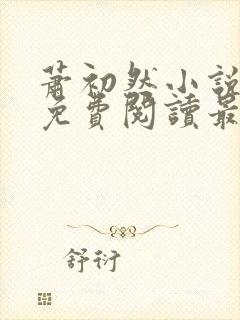 蕭初然小說
免費閱讀最
舒衍